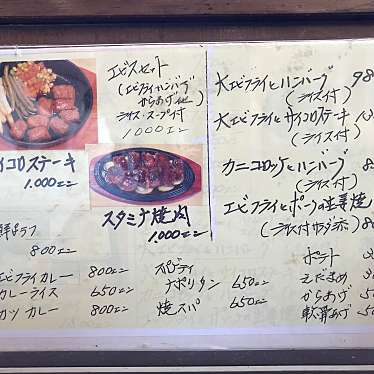 エビスセット
(エビフライ,ハンバーグ
からあげ他
ライス・スープ付)
1000エン
イコロステーキ
1.000エン
スタミナ焼肉
1000エン
ピラフ
800エン
エビフライカレー 800エン
カレーライス 650エン
カツ カレー 800エン
スパゲティ
ナポリタン 650エン
焼スパ 650エン
大エビフライとハンバーグ 98
(ライス付)
大エビフライとサイコロステーキ
(ライス付)
カニコロッケとハンバーグ
(ライス付)
エビフライとポークの生姜焼
(ライス付サラダ添) 80
ポテト
えだまめ
からあげ
軟骨あげ